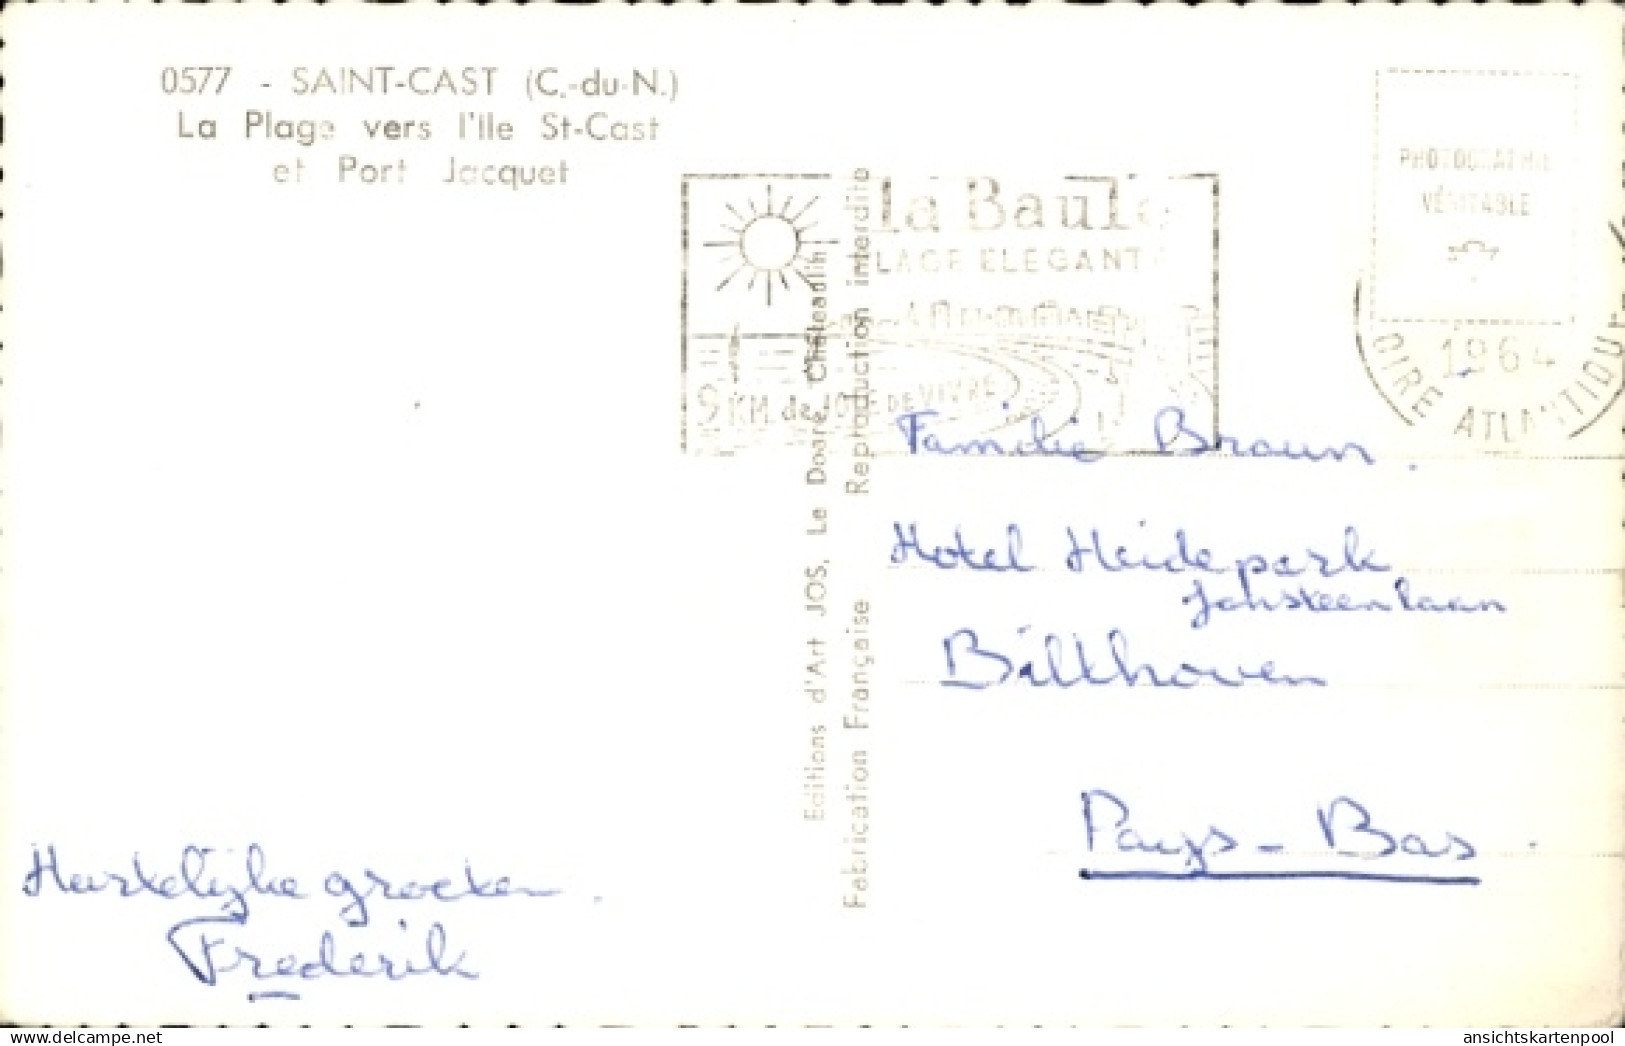 0577 - SAINT-CAST (C.-du-N.)
La Plage vers l'Ile St-Cast
et Port Jacquet
la Baule
PLAGE ELEGANTE
9 KM. de JOIE DE VIVRE
PHOTOGRAPHIE
VÉRITABLE
1964
LOIRE ATLANTIQUE
Editions d'Art JOS, Le Doaré, Châteaulin
Fabrication Française Reproduction interdite
Familie Braun.
Hotel Heidepark
Jan steenlaan
Bilthoven
Pays-Bas.
Hartelijke groeten.
Frederik
www.delcampe.net
ansichtskartenpool